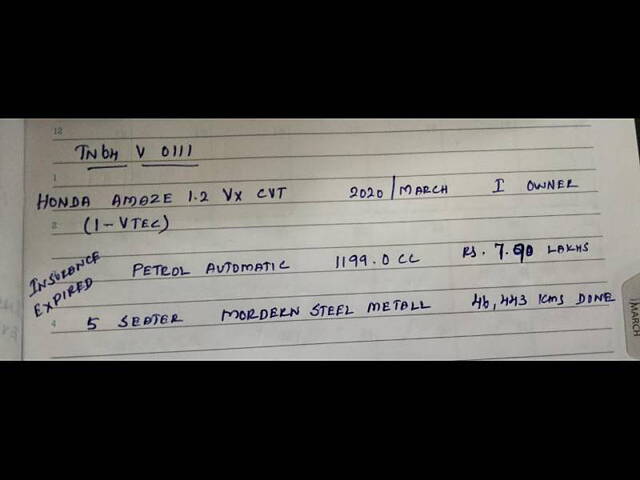 12
TN64 V 0111
1
HONDA AMAZE 1.2 VX CVT 2020/MARCH I OWNER
2
(I-VTEC)
INSURANCE EXPIRED
PETROL AUTOMATIC 1199.0 CC RS. 7.90 LAKHS
4
5 SEATER MORDERN STEEL METALL 46,443 KMS DONE
MARCH